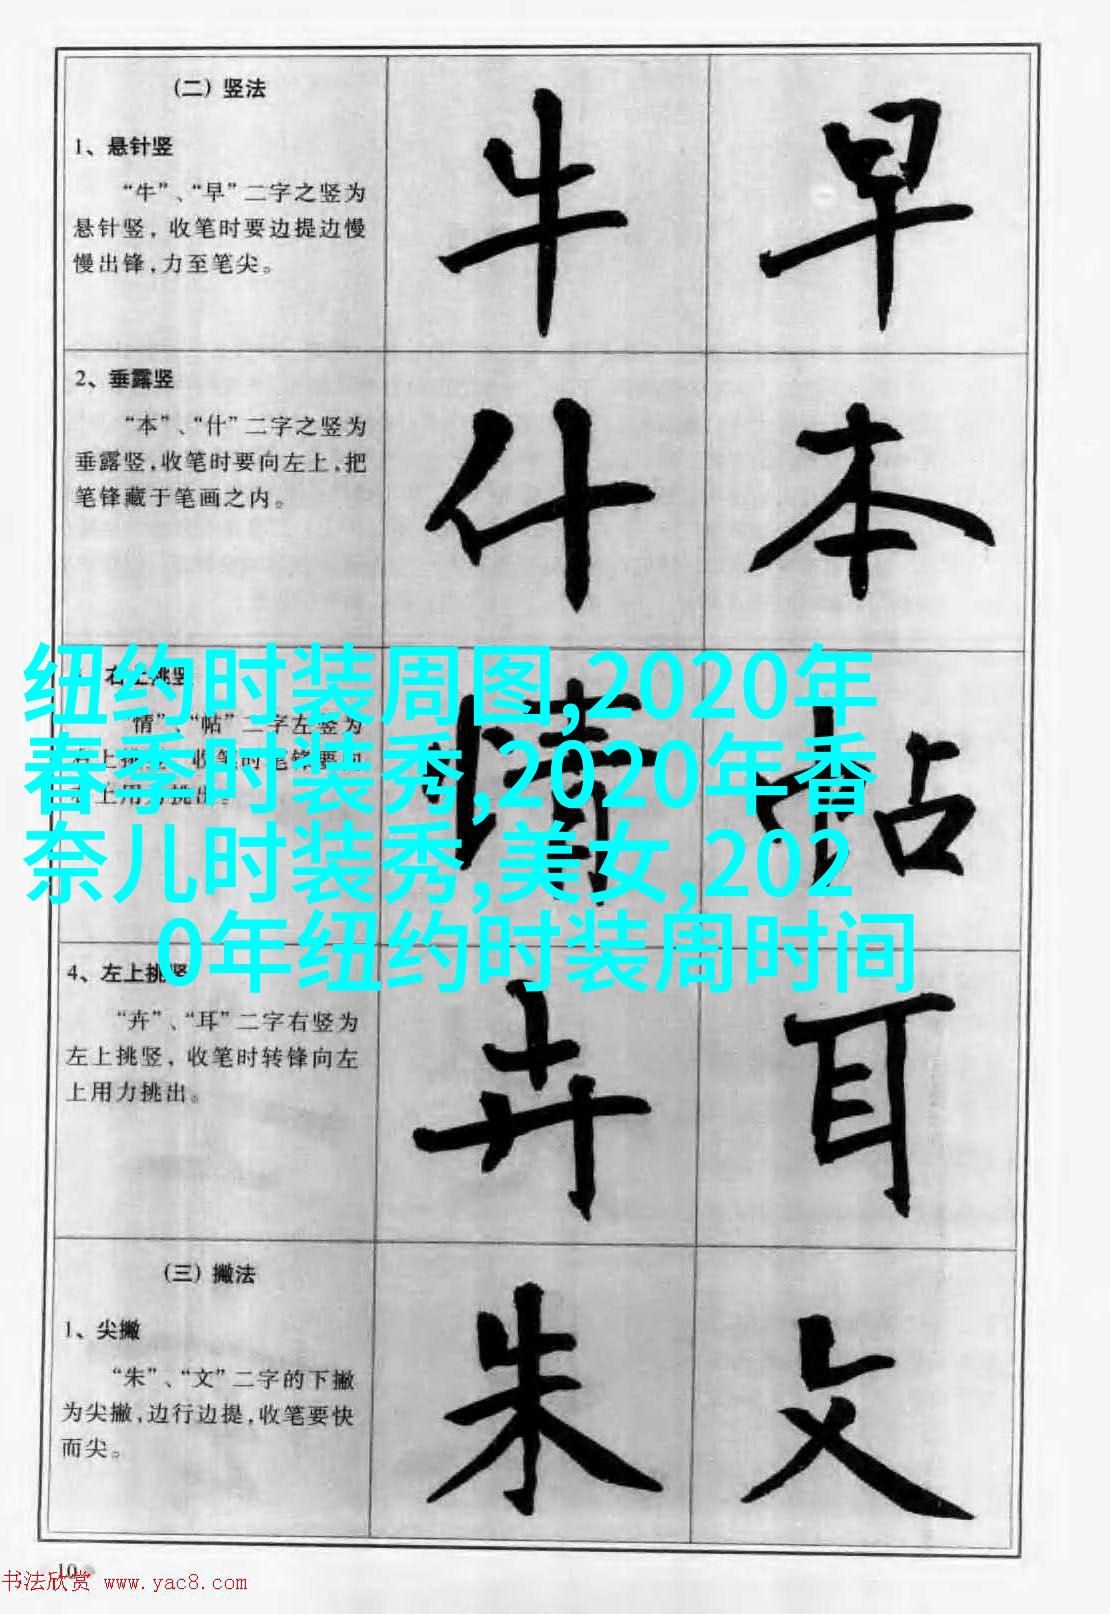 （二）竖法
1、悬针竖
“牛”、“早”二字之竖为
悬针竖，收笔时要边提边慢
慢出锋，力至笔尖。
牛 早
2、垂露竖
“本”、“什”二字之竖为
垂露竖，收笔时要向左上，把
笔锋藏于笔画之内。
什 本
右上挑竖
“情”、“帖”二字左竖为
上用力挑出。
情 帖
纽约时装周图,2020年
春季时装秀,2020年香
奈儿时装秀,美女,202
0年纽约时装周时间
4、左上挑竖
“卉”、“耳”二字右竖为
左上挑竖，收笔时转锋向左
上用力挑出。
卉 耳
（三）撇法
1、尖撇
“朱”、“文”二字的下撇
为尖撇，边行边提，收笔要快
而尖。
朱 文
10
书法欣赏 www.yac8.com